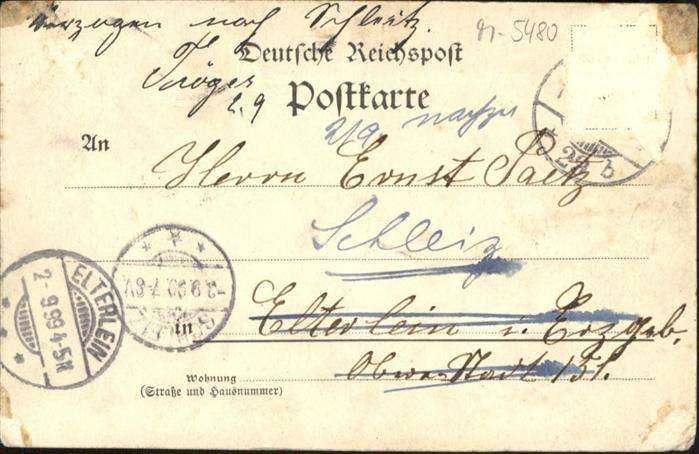 Verzogen nach Schleitz.
Tröger
2.9
21-5480
Deutsche Reichspost
Postkarte
2/9 nachzu
An
Herrn Ernst Paetz
Schleiz
in Elterlein i. Erzgeb.
Obere Stadt 151.
Wohnung
(Straße und Hausnummer)
ELTERLEIN
2. 9.99 4-5N
3.9.99.7-8V
b